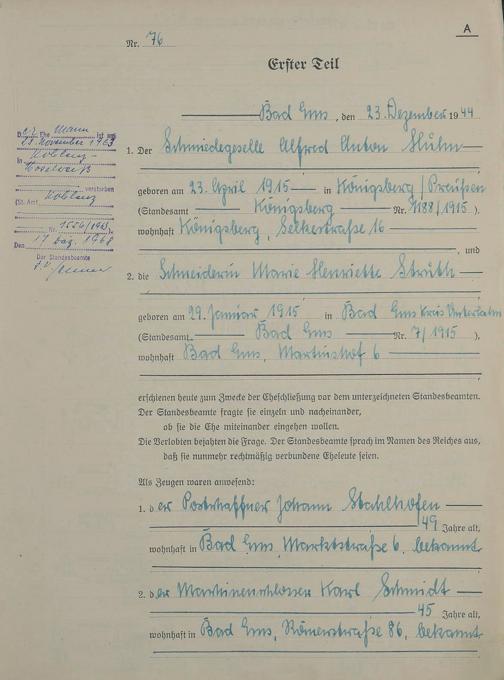 A
Nr. 76
Erster Teil
Bad Ems, den 23. Dezember 1944
1. Der Schmiedegeselle Alfred Anton
geboren am 23. April 1915 in Königsberg/Preußen
(Standesamt Königsberg Nr. 1188/1915),
wohnhaft Königsberg, straße 16
, und
2. die Schneiderin Marie Henriette Struth
geboren am 29. Januar 1915 in Bad Ems Kreis Unterlahn
(Standesamt Bad Ems Nr. 7/1915),
wohnhaft Bad Ems, Martinshof 6
erschienen heute zum Zwecke der Eheschließung vor dem unterzeichneten Standesbeamten.
Der Standesbeamte fragte sie einzeln und nacheinander,
ob sie die Ehe miteinander eingehen wollen.
Die Verlobten bejahten die Frage. Der Standesbeamte sprach im Namen des Reiches aus,
daß sie nunmehr rechtmäßig verbundene Eheleute seien.
Als Zeugen waren anwesend:
1. der Postschaffner Johann Stahlhofen
49 Jahre alt,
wohnhaft in Bad Ems, Marktstraße 6, bekannt
2. der Maschinenschlosser Karl Schmidt
45 Jahre alt,
wohnhaft in Bad Ems, Römerstraße 86, bekannt
Mann ist am
28. November 1963
in Koblenz-
Moselweiß
verstorben
(St. Amt Koblenz
Nr. 1556/1963)
Den 17. Dez. 1968
Der Standesbeamte